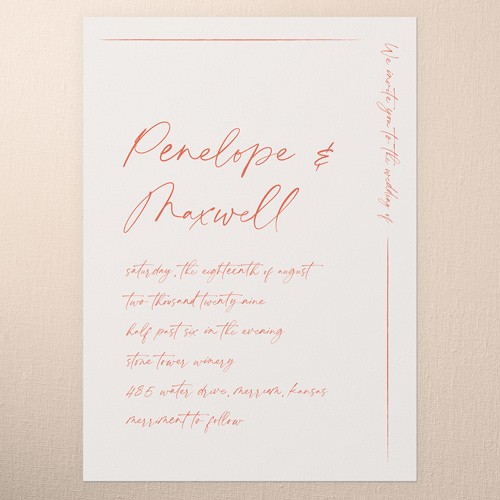 We invite you to the wedding of
Penelope &
Maxwell
saturday, the eighteenth of august
two thousand twenty nine
half past six in the evening
stone tower winery
485 water drive, merriem, kansas
merriment to follow